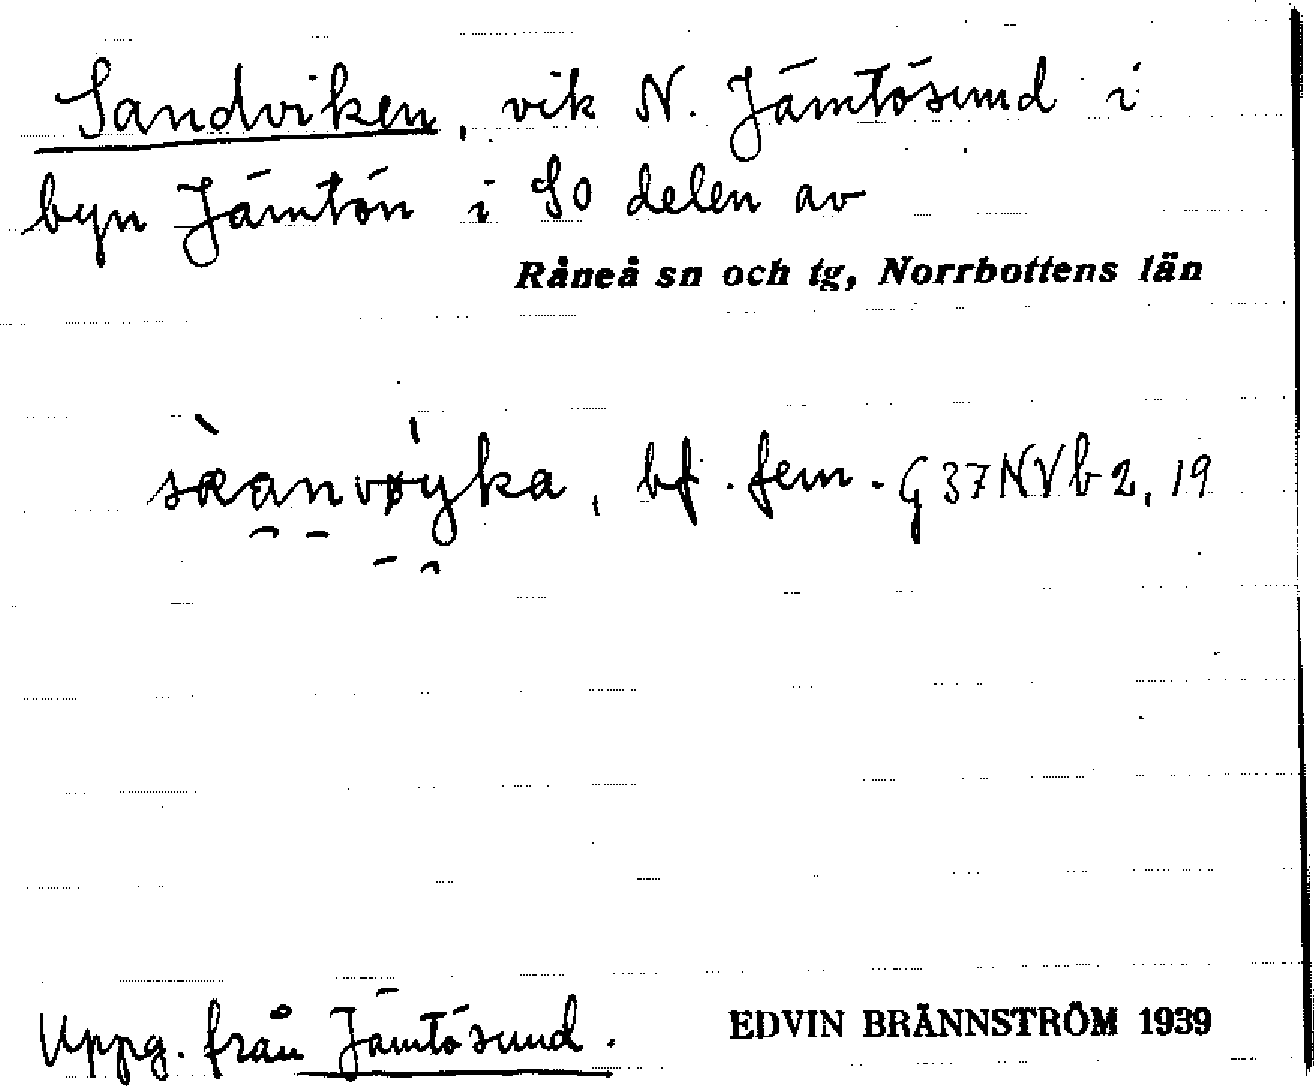 Sandviken, vik N. Jämtösund i
byn Jämtön i SO delen av
Råneå sn och tg, Norrbottens län
bf. fem. G 37 NVb2, 19
Uppg. från Jämtösund.
EDVIN BRÄNNSTRÖM 1939